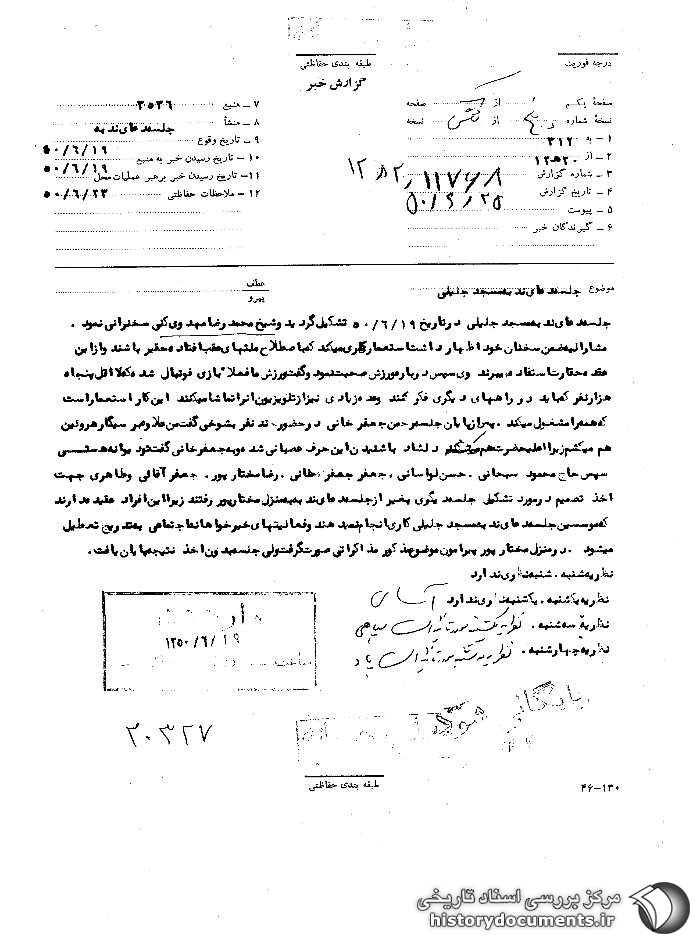 طبقه بندی حفاظتی
درجه فوریت
گزارش خبر
صفحه یکم از صفحه
نسخه شماره از نسخه
۱ - به ۳۱۲
۲ - از ۲۰ ه ۱۲
۳ - شماره گزارش ۱۱۷۶۸ / ۲ ه ۱۲
۴ - تاریخ گزارش ۵۰/۶/۲۵
۵ - پیوست
۶ - گیرندگان خبر
۷ - منبع ۳۵۳۶
۸ - منشأ جلسه دعای ندبه
۹ - تاریخ وقوع ۵۰/۶/۱۹
۱۰ - تاریخ رسیدن خبر به منبع ۵۰/۶/۱۹
۱۱ - تاریخ رسیدن خبر برهبر عملیات محل
۱۲ - ملاحظات حفاظتی ۵۰/۶/۲۳
موضوع جلسه دعای ندبه مسجد جلیلی
عطف
پیرو
جلسه دعای ندبه مسجد جلیلی در تاریخ ۵۰/۶/۱۹ تشکیل گردید و شیخ محمد رضا مهدوی کنی سخنرانی نمود .
مشارالیه ضمن سخنان خود اظهار داشت استعمار کاری میکند که باصطلاح ملتهای عقب افتاده حقیر باشند و از این
عقده حقارت استفاده میبرند وی سپس درباره ورزش صحبت نمود و گفت ورزش ما فعلا" بازی فوتبال شده که لااقل پنجاه
هزار نفر که باید در راههای دیگری فکر کنند وعده زیادی نیز از تلویزیون آنرا تماشا میکنند این کار استعمار است
که همه را مشغول میکند . پس از پایان جلسه جعفر خانی در حضور چند نفر بشوخی گفت من علاوه بر سیگار هروئین
هم میکشم زیرا اعلیحضرت هم میکشد دلشاد باشنیدن این حرف عصبانی شد و به جعفر خانی گفت تو دیوانه هستی
سپس حاج محمود سبحانی . حسن لواسانی . جعفر جعفر خانی . رضا مختار پور . جعفر آقائی و طاهری جهت
اخذ تصمیم در مورد تشکیل جلسه دیگری بغیر از جلسه دعای ندبه به منزل مختارپور رفتند زیرا این افراد عقیده دارند
که موسسین جلسه دعای ندبه مسجد جلیلی کاری انجام نمیدهند و فعالیتهای خیرخواهانه اجتماعی به تدریج تعطیل
میشود . در منزل مختار پور پیرامون موضوع مذکور مذاکراتی صورت گرفت ولی جلسه بدون اخذ نتیجه پایان یافت .
نظریه شنبه . شنبه نظری ندارد
نظریه یکشنبه . یکشنبه نظری ندارد آسای
نظریه سه شنبه . نظریه یکشنبه مورد تائید است سپاهی
نظریه چهارشنبه . نظریه سه شنبه مورد تائید است
۱۳۵۰/۶/۱۹
ساعت
بایگانی شود
۲۰۳۲۷
طبقه بندی حفاظتی
۴۶-۱۳۰
مرکز بررسی اسناد تاریخی
historydocuments.ir